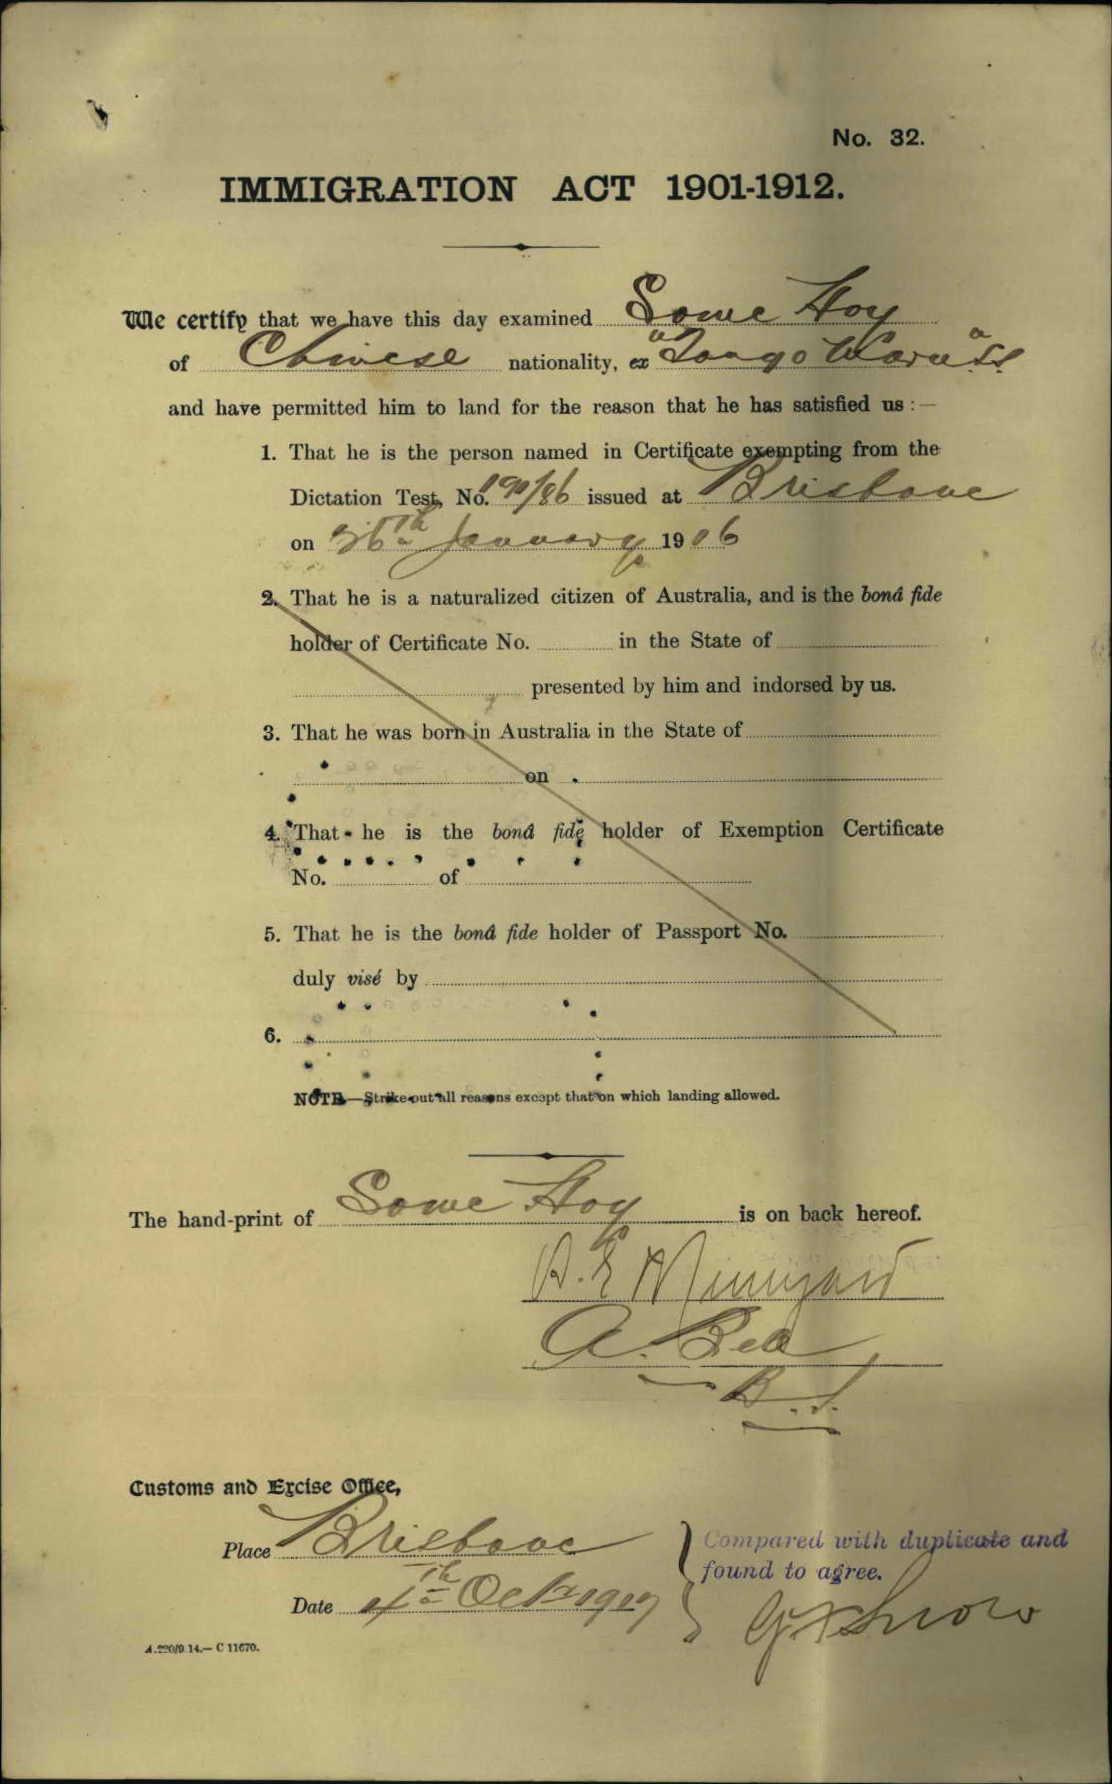 No. 32.
IMMIGRATION ACT 1901-1912.
We certify that we have this day examined Sowe Hoy
of Chinese nationality, ex "Tango Maru" S.S.
and have permitted him to land for the reason that he has satisfied us :—
1. That he is the person named in Certificate exempting from the
Dictation Test, No. 190/86 issued at Brisbane
on 26th January 1906
2. That he is a naturalized citizen of Australia, and is the bonâ fide
holder of Certificate No. in the State of
presented by him and indorsed by us.
3. That he was born in Australia in the State of
on
4. That he is the bonâ fide holder of Exemption Certificate
No. of
5. That he is the bonâ fide holder of Passport No.
duly visé by
6.
NOTE.—Strike out all reasons except that on which landing allowed.
The hand-print of Sowe Hoy is on back hereof.
A. Bell
Customs and Excise Office,
Place Brisbane
Compared with duplicate and
found to agree.
Date 4th Octr 1917
A.220/9.14.—C 11670.